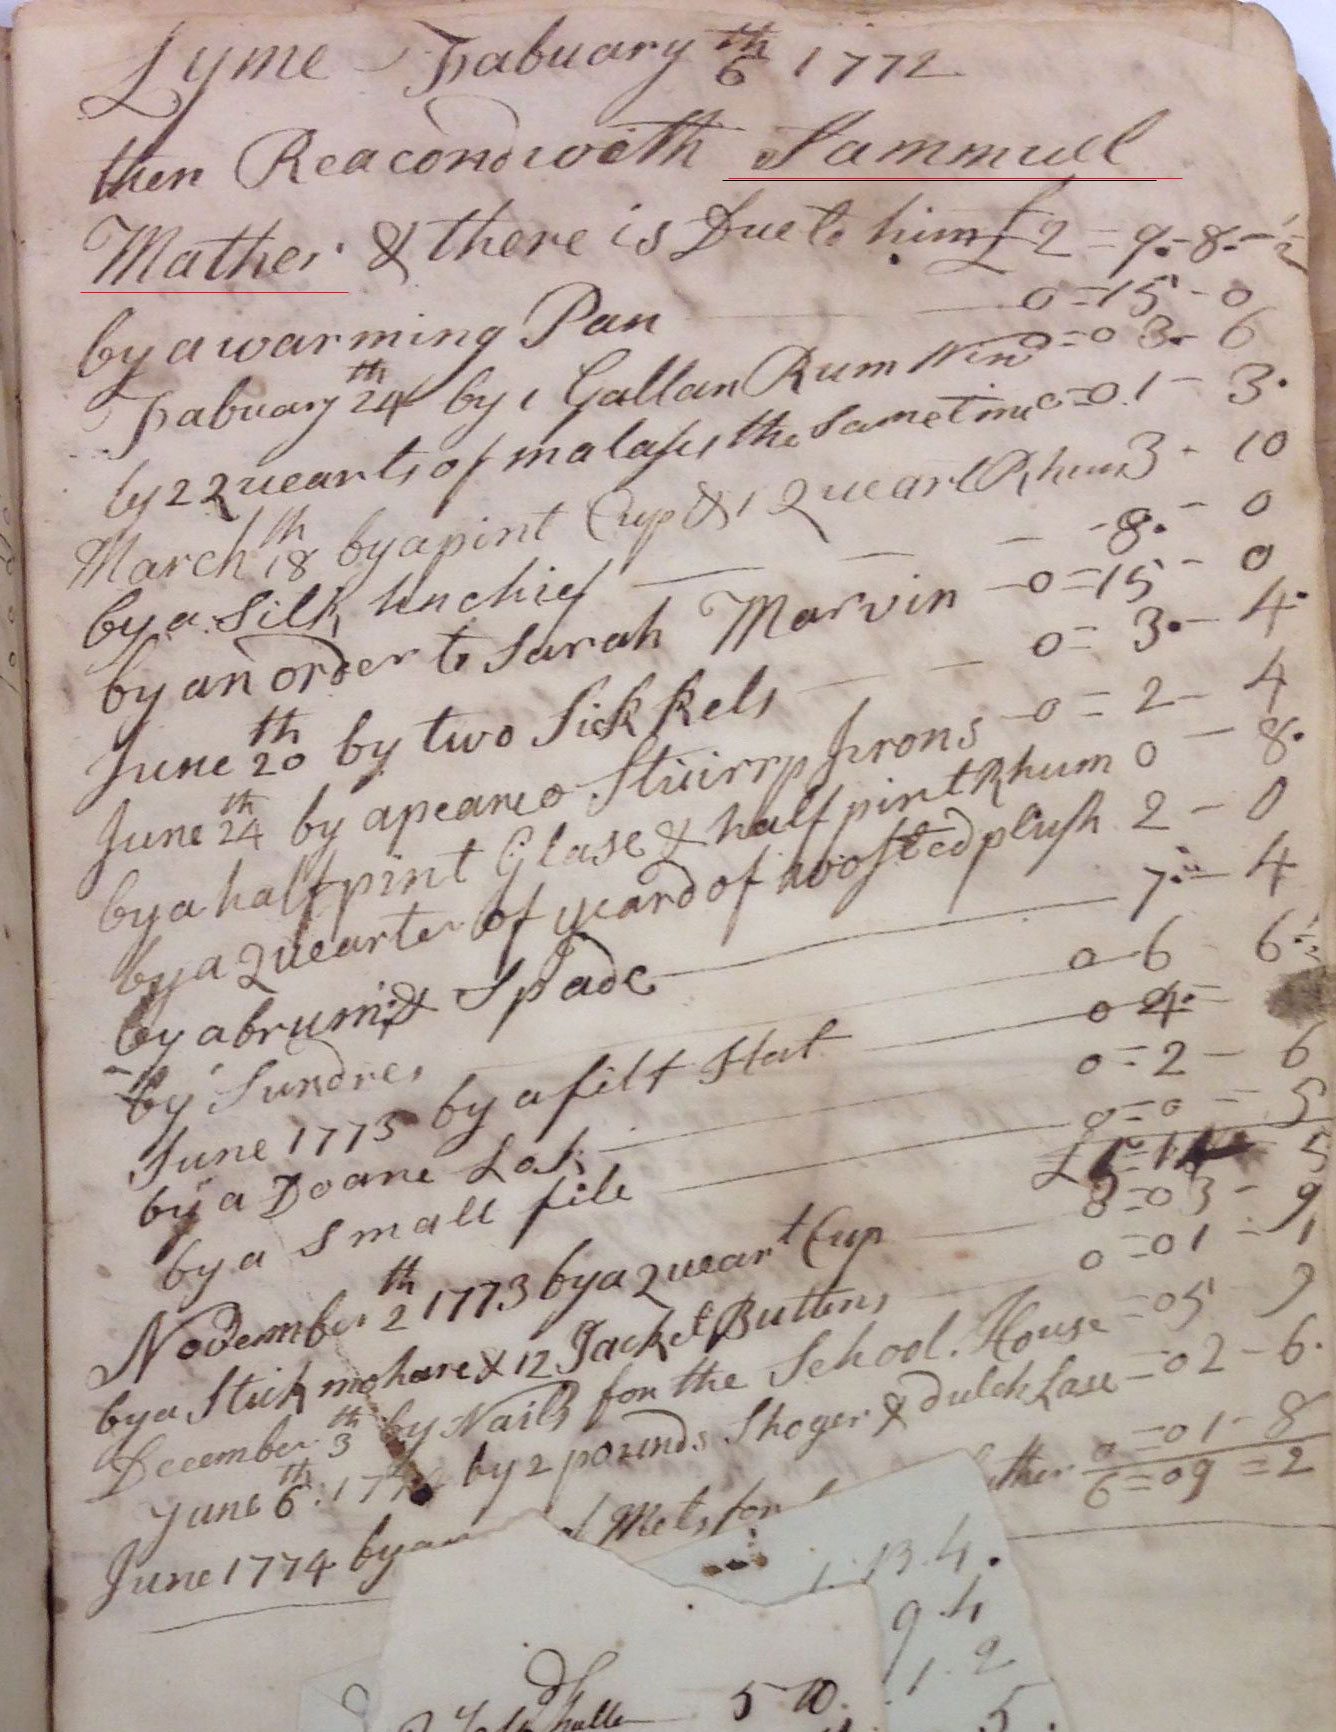 Lyme Fabuary 6th 1772
then Reacond with Sammuel
Mather & there is Due to him £2=9-8-1/2
by a warming Pan 0=15-0
Fabuary 24th by 1 Gallan Rum 0=03-6
by 2 Quearts of malases the Same time 0=01-3
March 18th by a pint Cup & 1 Queart Rhum 3-10
by a Silk hnchief -8-0
by an order to Sarah Marvin 0=15-0
June 20th by two Sickkels 0=3-4
June 24th by a peare o Stuirrp Jrons 0=2-4
by a half pint Glase & half pint Rhum 0-8
by a Quearter of yeard of woosted plush 2-0
by a brum & Spade 7-4
by Sundres 0-6 6 1/2
June 1773 by a filt Hat 0 4=
by a Doare Lok 0=2-6
by a small file 0=0=5
£5 5
November 2th 1773 by a Queart Cup 0=03-9
by a Stick mohare & 12 Jacket Buttens 0=01=1
December 3th by Nails for the School House =05 9
June 6th by 2 pounds Shoger & dutch Lase =02-6
June 1774 by Mets for 0=01-8
6=09=2
1.13.4
9.4
1.2
5 10.
5.